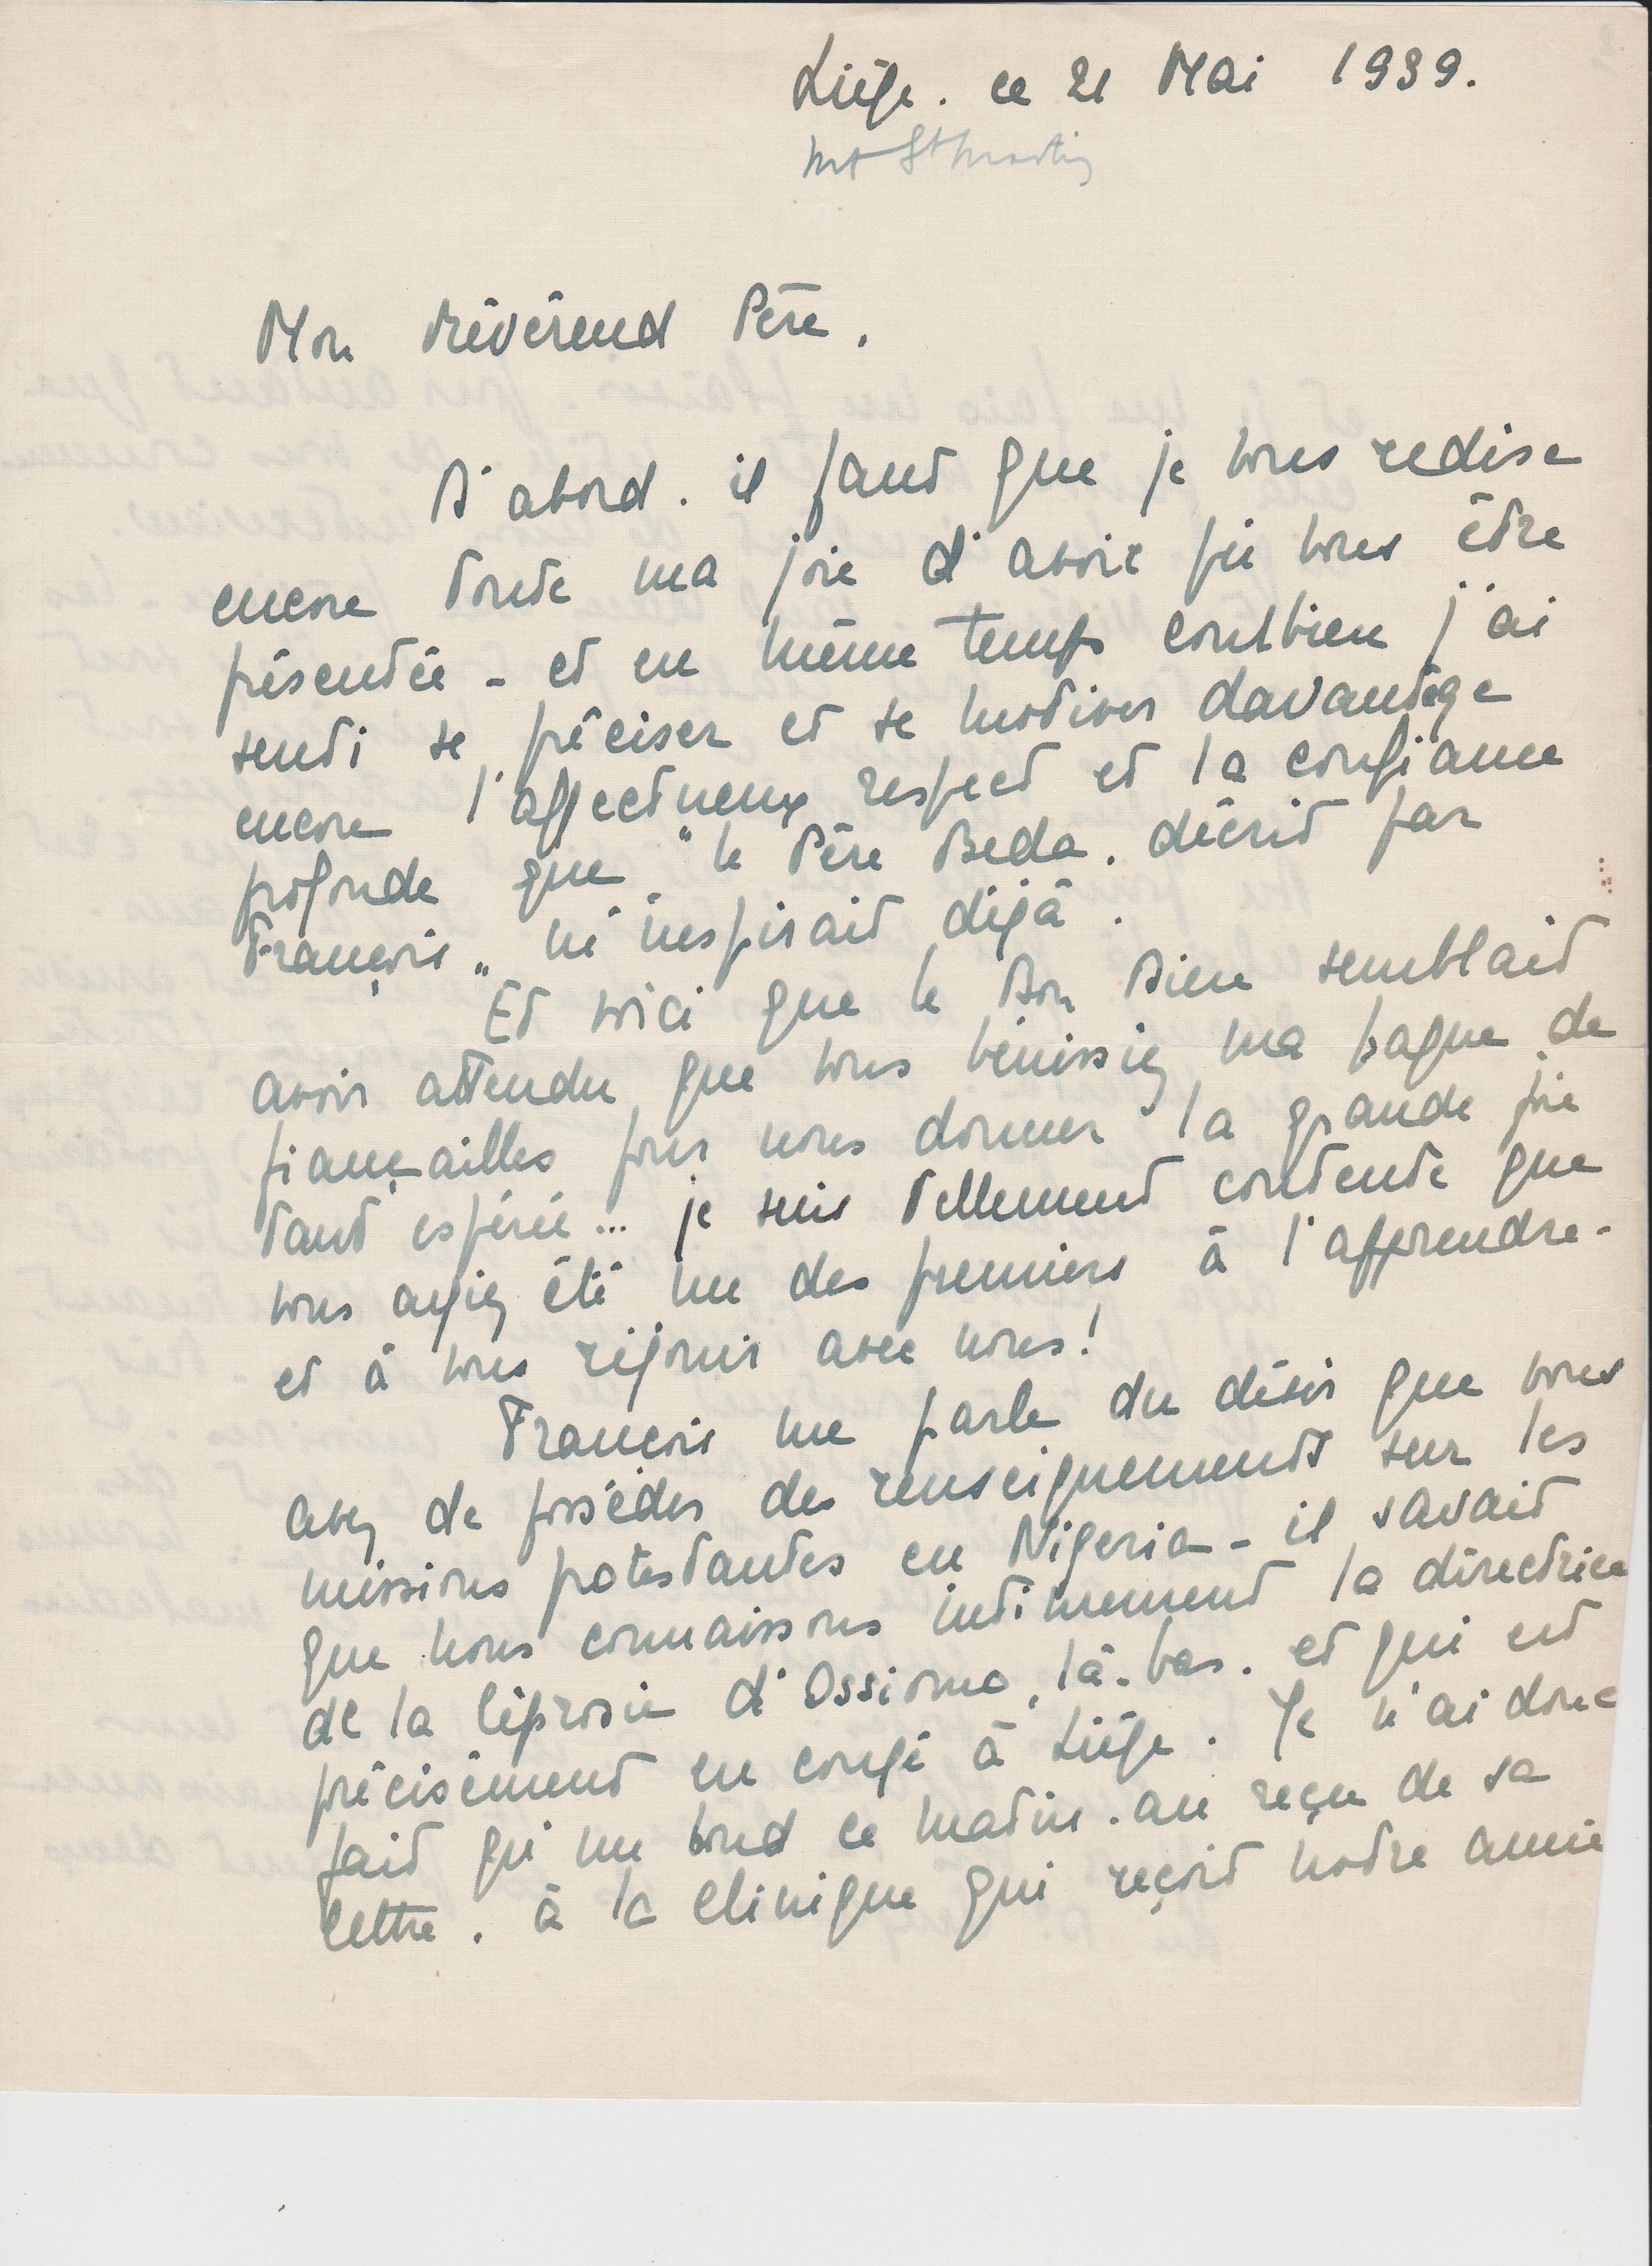 Liége. ce 21 Mai 1939.
Mt St Martin
Mon Révérend Père,
D'abord. il faut que je vous redise
encore toute ma joie d'avoir pu vous être
présentée - et en même temps combien j'ai
senti se préciser et se motiver davantage
encore l'affectueux respect et la confiance
profonde que "le Père Beda. décrit par
François" m'inspirait déjà.
Et voici que le Bon Dieu semblait
avoir attendu que vous bénissiez ma bague de
fiançailles pour nous donner la grande joie
tant espérée... je suis tellement contente que
vous ayiez été un des premiers à l'apprendre -
et à vous réjouir avec nous!
François me parle du désir que vous
avez de posséder des renseignements sur les
missions protestantes en Nigeria - il savait
que nous connaissons intimement la directrice
de la léproserie d'Ossiomo, là-bas. et qui est
précisément en congé à Liége. Je n'ai donc
fait qu'un bond ce matin. au reçu de sa
lettre. à la clinique qui reçoit notre amie